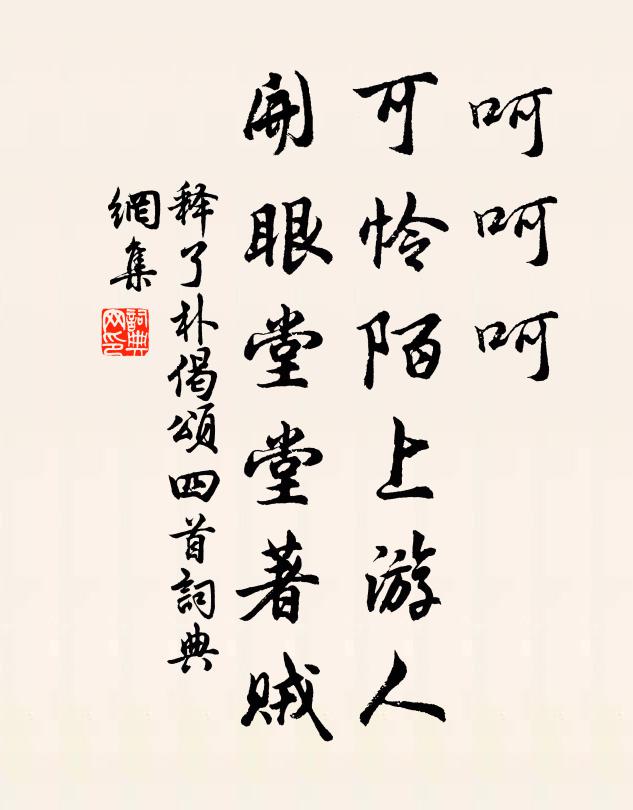 呵呵呵
可怜陌上游人
開眼堂堂著贼
释了朴偈頌四首詞典
網集
詞典
网印